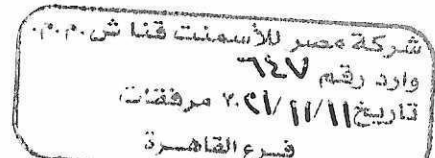 شركة مصر للأسمنت قنا ش.م.م.
وارد رقم ٦٤٧
تاريخ ١١/١١/٢٠٢١ مرفقات
فرع القاهرة